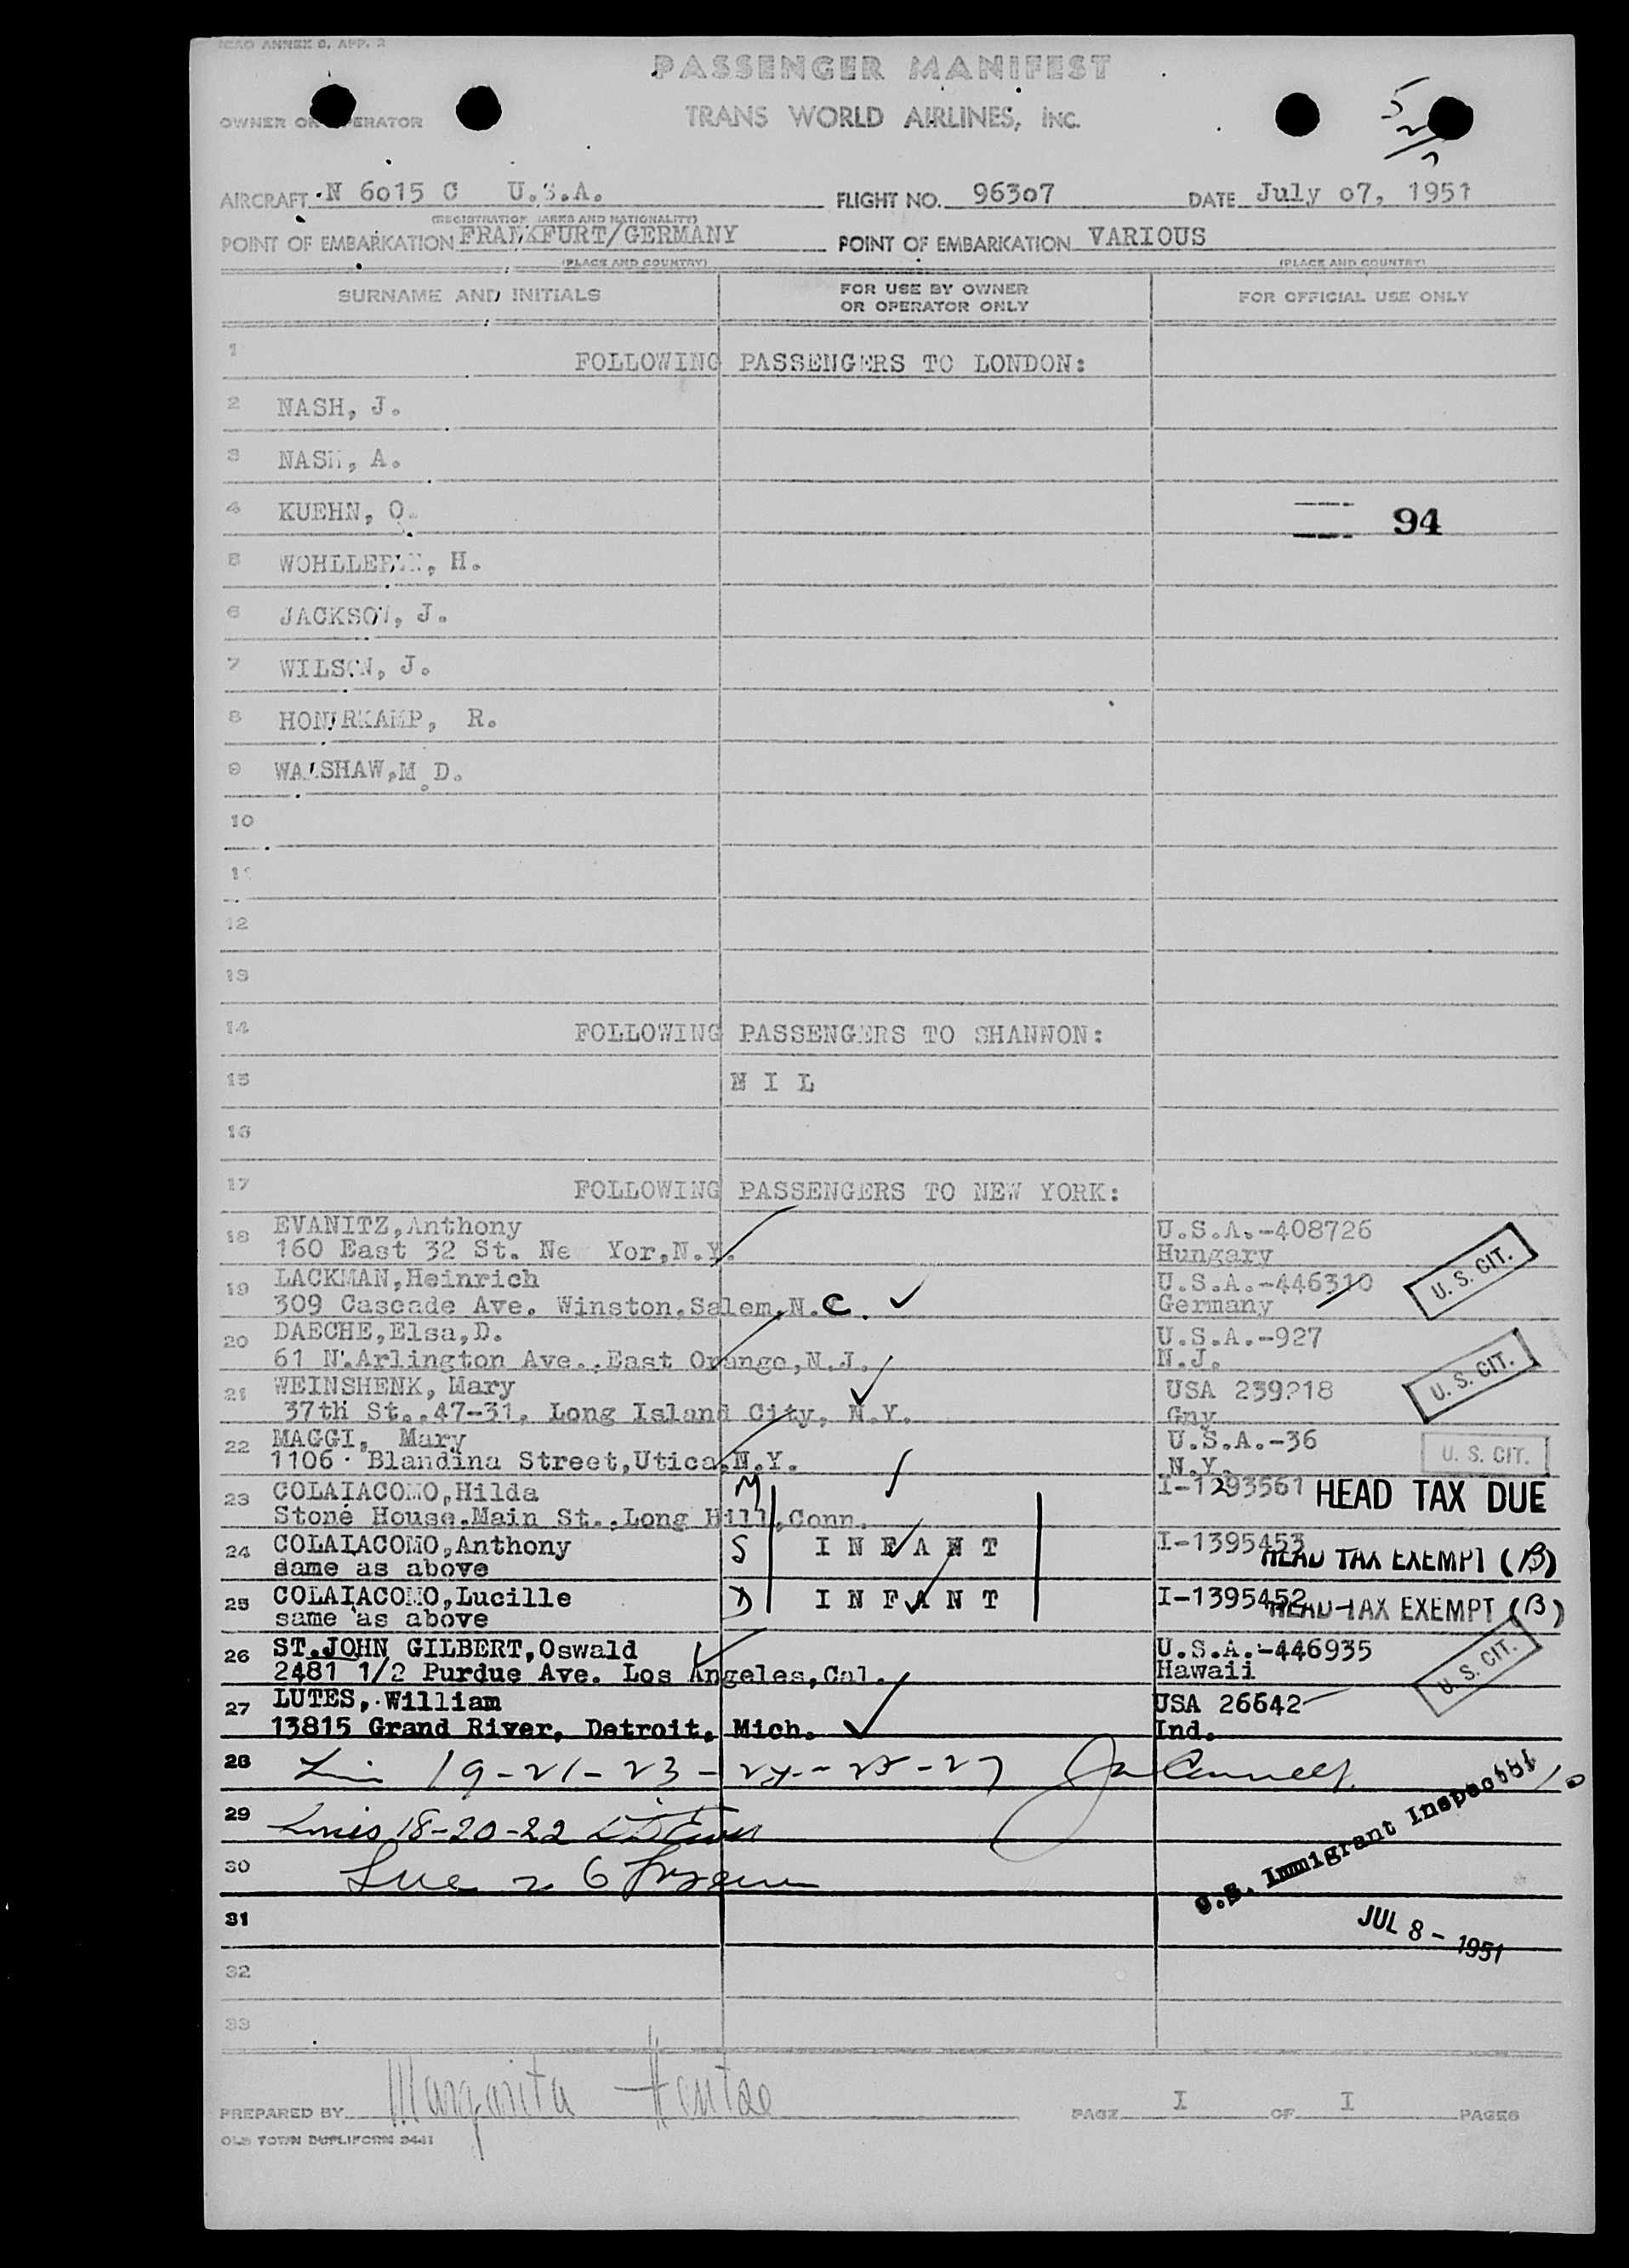 ICAO ANNEX 9, APP. 2
PASSENGER MANIFEST
OWNER OR OPERATOR TRANS WORLD AIRLINES, INC.
AIRCRAFT N 6015 C U.S.A. FLIGHT NO. 96307 DATE July 07, 1951
(REGISTRATION MARKS AND NATIONALITY)
POINT OF EMBARKATION FRANKFURT/GERMANY POINT OF EMBARKATION VARIOUS
(PLACE AND COUNTRY) (PLACE AND COUNTRY)
SURNAME AND INITIALS FOR USE BY OWNER OR OPERATOR ONLY FOR OFFICIAL USE ONLY
1 FOLLOWING PASSENGERS TO LONDON:
2 NASH, J.
3 NASH, A.
4 KUEHN, O. 94
5 H.
6 JACKSON, J.
7 WILSON, J.
8 R.
9 M.D.
10
11
12
13
14 FOLLOWING PASSENGERS TO SHANNON:
15 N I L
16
17 FOLLOWING PASSENGERS TO NEW YORK:
18 EVANITZ,Anthony U.S.A.-408726
160 East 32 St. Ne Yor,N.Y. Hungary
19 LACKMAN,Heinrich U.S.A.-446310 U. S. CIT.
309 Cascade Ave. Winston.Salem.N.C. Germany
20 DAECHE,Elsa,D. U.S.A.-927
61 N.Arlington Ave.,East Orange,N.J. N.J.
21 WEINSHENK, Mary USA 239218 U. S. CIT.
37th St.,47-31, Long Island City, N.Y. Gny
22 MAGGI, Mary U.S.A.-36 U. S. CIT.
1106 Blandina Street,Utica,N.Y. N.Y.
23 COLAIACOMO,Hilda M I-1293561 HEAD TAX DUE
Stone House.Main St.,Long Hill,Conn.
24 COLAIACOMO,Anthony S I N F A N T I-1395453 HEAD TAX EXEMPT (B)
same as above
25 COLAIACOMO,Lucille D I N F A N T I-1395452 HEAD TAX EXEMPT (B)
same as above
26 ST.JOHN GILBERT,Oswald U.S.A.-446935 U. S. CIT.
2481 1/2 Purdue Ave. Los Angeles,Cal. Hawaii
27 LUTES, William USA 26642
13815 Grand River, Detroit, Mich. Ind.
28 19-21-23-24-25-27
29 Lines 18-20-22
30 Line 26
U.S. Immigrant Inspector
31 JUL 8 - 1951
32
33
PREPARED BY Margarita PAGE I OF I PAGES
OLD TOWN DUPLIFORM 3441